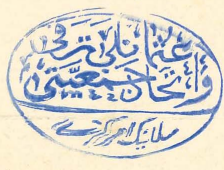 عثمانلی ترقی
و اتحاد جمعیتی
سلانیك مركزی